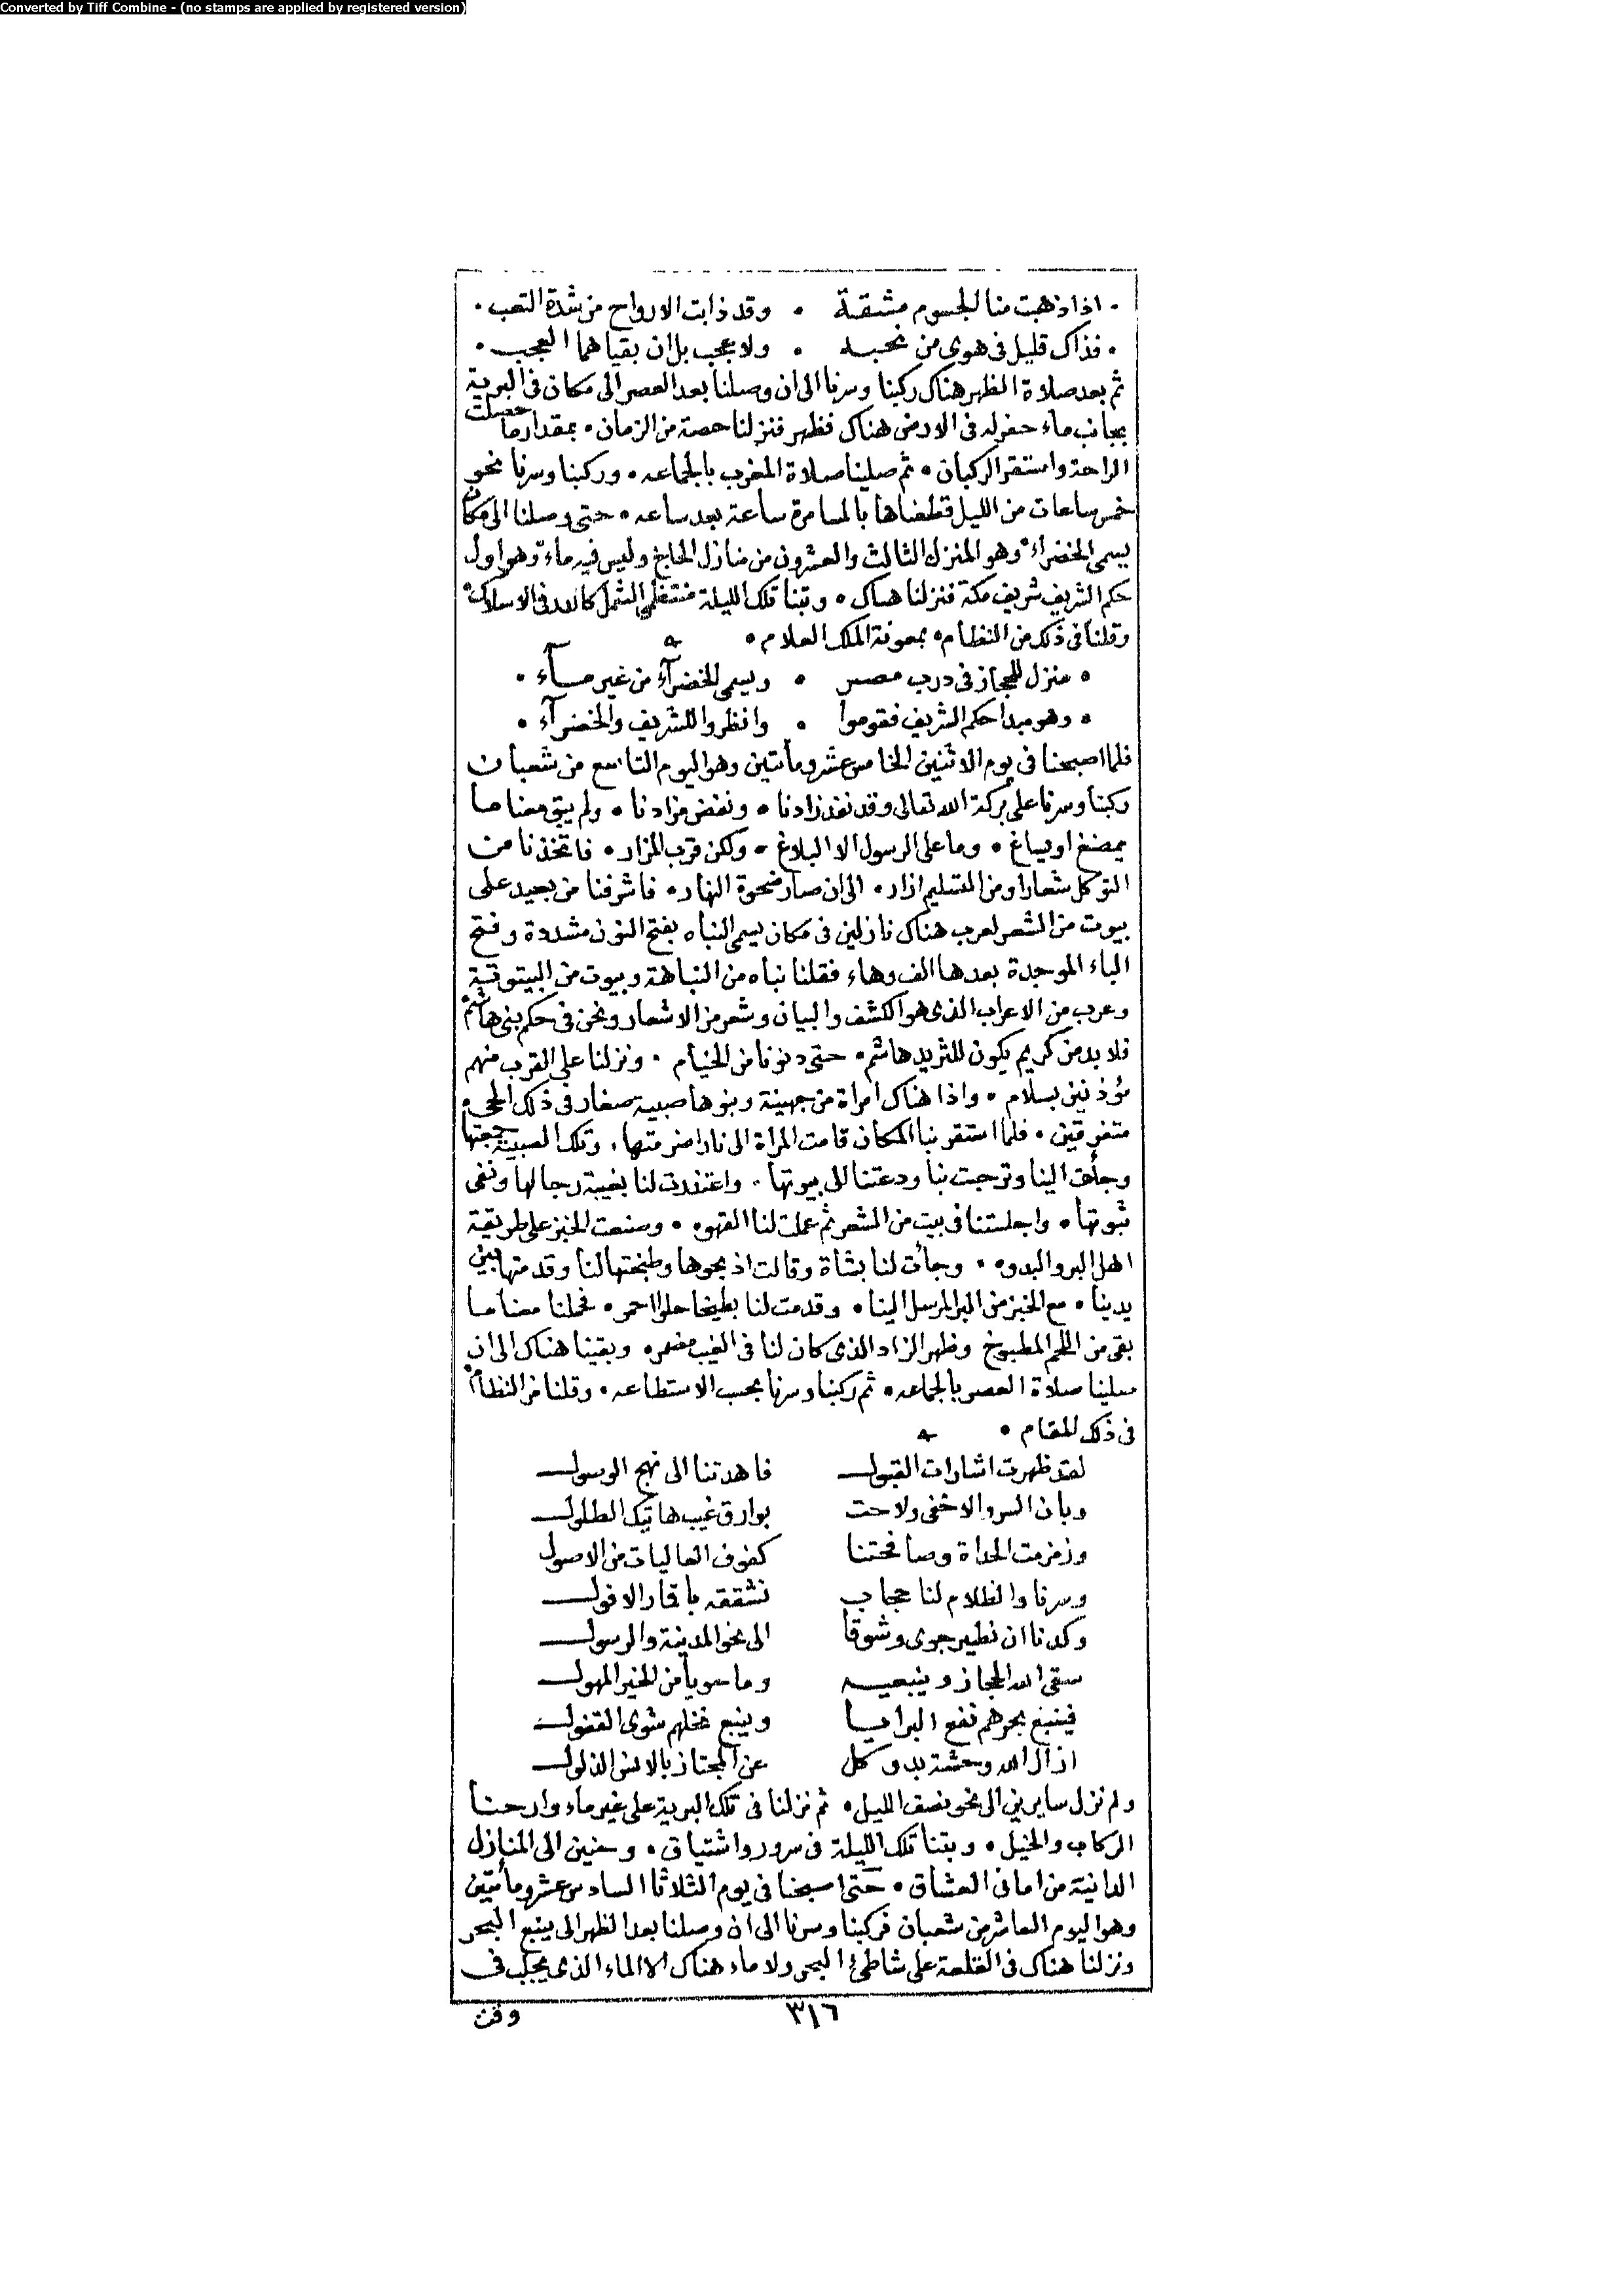 Converted by Tiff Combine - (no stamps are applied by registered version)
• اذا ذهبت منا الجسوم مشقة • وقد ذابت الارواح من شدة التعب •
• فذاك قليل فى هوى من نحبه • ولا عجب بل ان بقيا هما العجب •
ثم بعد صلاة الظهر هناك ركبنا وسرنا الى ان وصلنا بعد العصر الى مكان فى البرية
بجانب ماء حفر له فى الارض هناك فظهر فنزلنا حصة من الزمان • بمقدار ما حصلت
الراحة واستقر الركبان • ثم صلينا صلاة المغرب بالجماعه • وركبنا وسرنا نحو
خمس ساعات من الليل قطعناها بالمسامرة ساعة بعد ساعه • حتى وصلنا الى مكان
يسمى الخضراء • وهو المنزل الثالث والعشرون من منازل الحاج وليس فيه ماء وهو اول
حكم الشريف شريف مكة فنزلنا هناك • وبتنا تلك الليلة منتظمى الشمل كالدر فى الاسلاك •
وقلنا فى ذلك من النظام • بمعونة الملك العلام •
• منزل للحجاز فى درب مصر • ويسمى الخضرآء من غير مآء •
• وهو مبدا حكم الشريف فقوموا • وانظروا للشريف والخضرآء •
فلما اصبحنا فى يوم الاثنين الخامس عشر ومأتين وهو اليوم التاسع من شعبان
ركبنا وسرنا على بركة الله تعالى وقد نفد زادنا • ونفض مزادنا • ولم يبق معنا ما
يمضغ او يساغ • وما على الرسول الا البلاغ • ولكن قرب المزار • فاتخذنا من
التوكل شعارا ومن التسليم ازار • الى ان صار ضحوة النهار • فاشرفنا من بعيد على
بيوت من الشعر لعرب هناك نازلين فى مكان يسمى النباه بفتح النون مشددة وفتح
الباء الموحدة بعدها الف وهاء فقلنا نباه من النباهة وبيوت من البيتوتية
وعرب من الاعراب الذى هو الكشف والبيان وشعر من الاشعار ونحن فى حكم بنى هاشم •
فلا بد من كريم يكون للثريد هاشم • حتى دنونا من الخيام • ونزلنا على القرب منهم
مؤذنين بسلام • واذا هناك امراة من جهينة وبنوها صبية صغار فى ذلك الحى •
متفرقين • فلما استقر بنا المكان قامت المرأة الى نار اضرمتها • وتلك الصبية جمعتها
وجأت الينا وترحبت بنا ودعتنا الى بيوتها • واعتذرت لنا بغيبة رجالها ونفى
ثبوتها • واجلستنا فى بيت من الشعر ثم عملت لنا القهوه • وصنعت الخبز على طريقة
اهل البر والبدوه • وجأت لنا بشاة وقالت اذبحوها وطبختها لنا وقدمتها بين
يدينا • مع الخبز من البر المرسل الينا • وقدمت لنا بطيخا حلوا احمر • فحملنا معنا ما
بقى من اللحم المطبوخ وظهر الزاد الذى كان لنا فى الغيب مضمر • وبقينا هناك الى ان
صلينا صلاة العصر بالجماعه • ثم ركبنا وسرنا بحسب الاستطاعه • وقلنا من النظام •
فى ذلك المقام •
لقد ظهرت اشارات القبول فاهدتنا الى نهج الوصول
وبان السر والاخفى ولاحت بوارق غيب هاتيك الطلول
وزمزمت الحداة وصافحتنا كفوف العاليات من الاصول
وسرنا والظلام لنا حجاب نشققه باقمار الافول
وكدنا ان نطير جوى وشوقا الى نحو المدينة والرسول
سقى الله الحجاز وينبعيه وما حويا من الخير المهول
فينبع بحرهم نفع البرايا وينبع نخلهم مثوى القفول
ازال الله وحشة بدو كل عن المجتاز بالانس الذلول
ولم نزل سايرين الى نحو نصف الليل • ثم نزلنا فى تلك البرية على غير ماء وارحنا
الركاب والخيل • وبتنا تلك الليلة فى سرور واشتياق • وحنين الى المنازل
الدانية من امانى العشاق • حتى اصبحنا فى يوم الثلاثا السادس عشر ومأتين
وهو اليوم العاشر من شعبان فركبنا وسرنا الى ان وصلنا بعد الظهر الى ينبع البحر
ونزلنا هناك فى القلعة على شاطئ البحر ولا ماء هناك الا الماء الذى يجلب فى
٣١٦
وقت